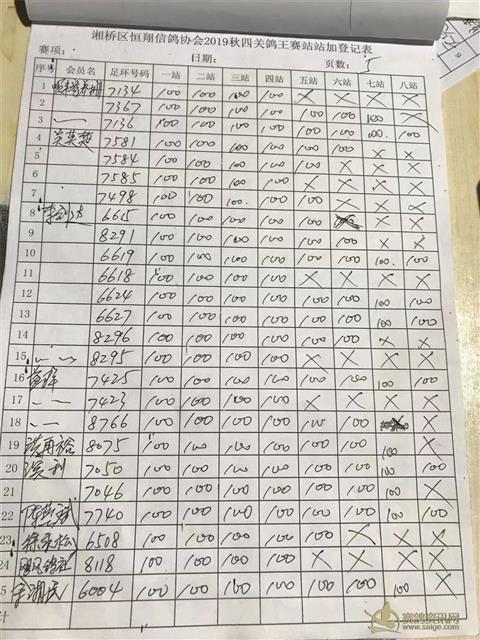 湘桥区恒翔信鸽协会2019秋四关鸽王赛站站加登记表
赛项： 日期： 页数：
序号 会员名 足环号码 一站 二站 三站 四站 五站 六站 七站 八站
1 7134 100 100 100 100 X X X X
2 7367 100 100 100 100 100 100 100 X
3 7136 100 100 100 100 100 100 100 100
4 7581 100 100 100 100 100 100 X X
5 7584 100 100 100 100 100 X X X
6 7585 100 100 100 100 X X X X
7 7498 100 100 100 100 100 X X X
8 6615 100 100 100 100 100 X X
9 8291 100 100 100 100 100 100 X X
10 6619 100 100 100 100 100 100 100 100
11 6618 100 100 100 100 X X X X
12 6624 100 100 100 100 100 100 100 100
13 6627 100 100 100 100 100 100 100 100
14 8296 100 100 100 100 100 100 X X
15 8295 100 100 100 100 X X X X
16 7425 100 100 100 100 100 100 100 100
17 7423 100 100 100 100 X X X X
18 8766 100 100 100 100 100 100 X
19 8075 100 100 100 100 100 100 100 X
20 7050 100 100 100 100 100 100 100 100
21 7046 100 100 100 100 100 100 100 X
22 7740 100 100 100 100 100 100 100 100
23 6508 100 100 100 100 100 X X X
24 8118 100 100 100 100 X X X X
5 6004 100 100 100 100 100 100 100 X
计
赛鸽资讯网
www.saige.com